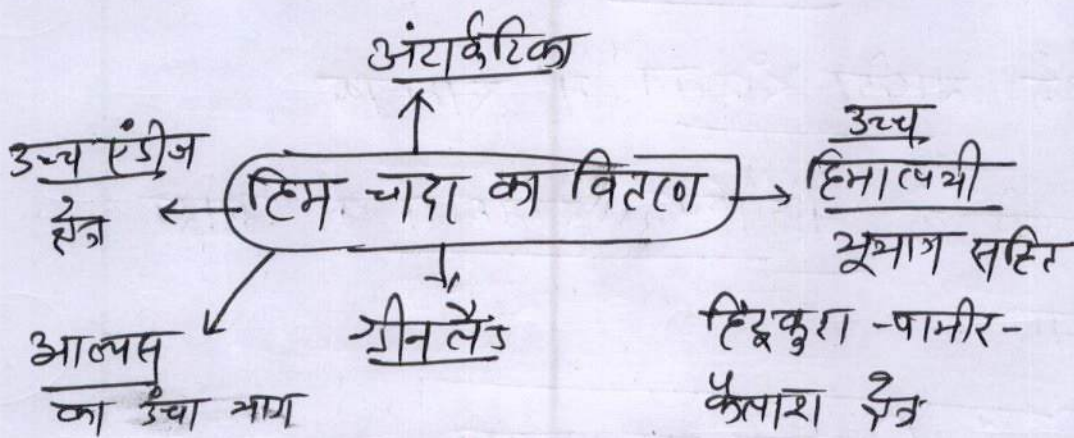 अंटार्कटिका
उच्च एंडीज
क्षेत्र
हिम चादर का वितरण
उच्च
हिमालयी
भूभाग सहित
हिंदुकुश - पामीर -
कैलाश क्षेत्र
ग्रीनलैंड
आल्पस
का ऊंचा भाग